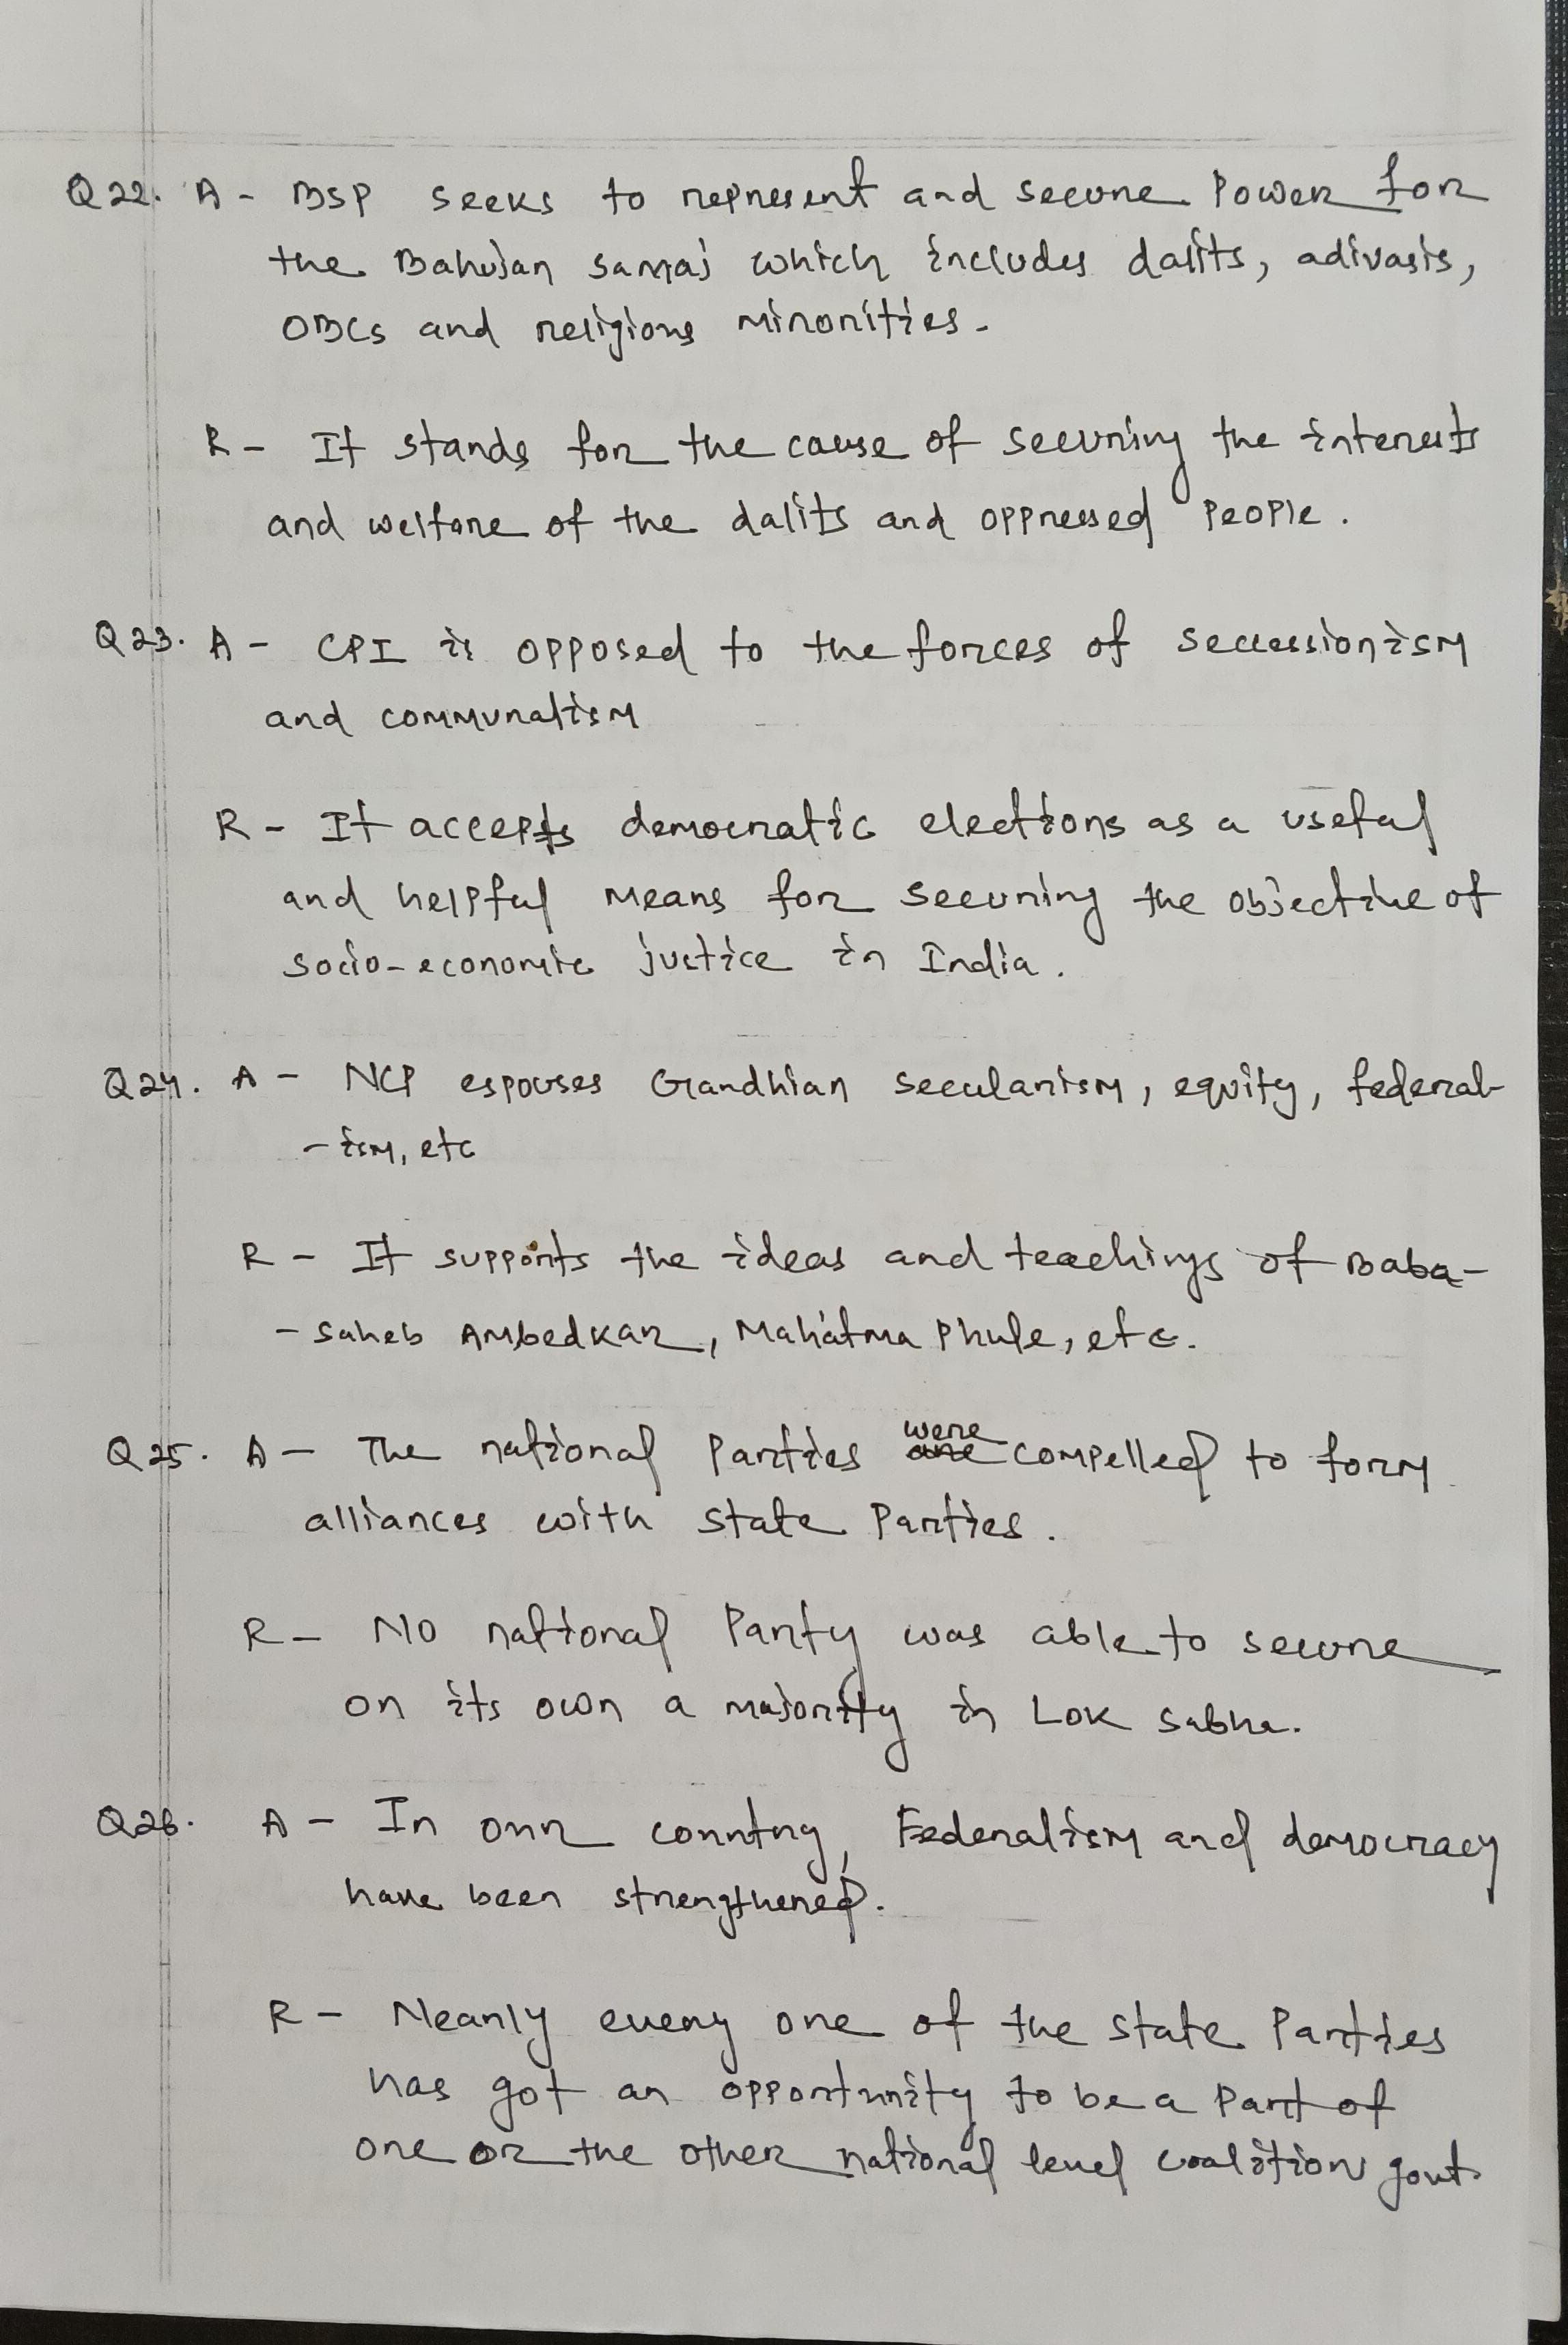 Q22. A - BSP seeks to represent and secure Power for
the Bahujan samaj which includes dalits, adivasis,
OBCs and religious minorities.
R - It stands for the cause of securing the interests
and welfare of the dalits and oppressed people.
Q23. A - CPI is opposed to the forces of secessionism
and communalism
R - It accepts democratic elections as a useful
and helpful means for securing the objective of
socio-economic justice in India.
Q24. A - NCP espouses Gandhian secularism, equity, federal-
- ism, etc
R - It supports the ideas and teachings of Baba-
- saheb Ambedkar, Mahatma Phule, etc.
Q25. A - The national Parties were compelled to form
alliances with state Parties.
R - No national Party was able to secure
on its own a majority in Lok sabha.
Q26. A - In our country, Federalism and democracy
have been strengthened.
R - Nearly every one of the state Parties
has got an opportunity to be a part of
one or the other national level coalition govt.